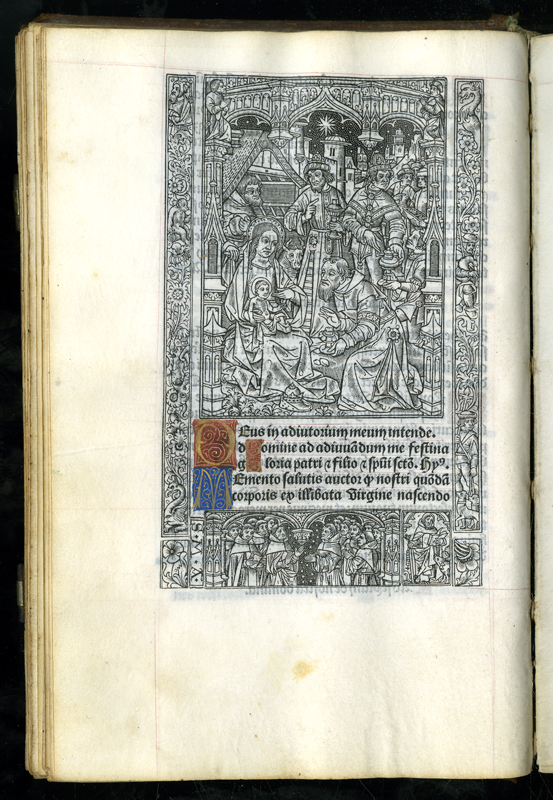 DEus in adiutorium meum intende.
domine ad adiuuādum me festina
gloria patri ⁊ filio ⁊ spūi sctō. Hyꝰ.
MEmento salutis auctor ꝙ nostri quōdā
corporis ex illibata Virgine nascendo